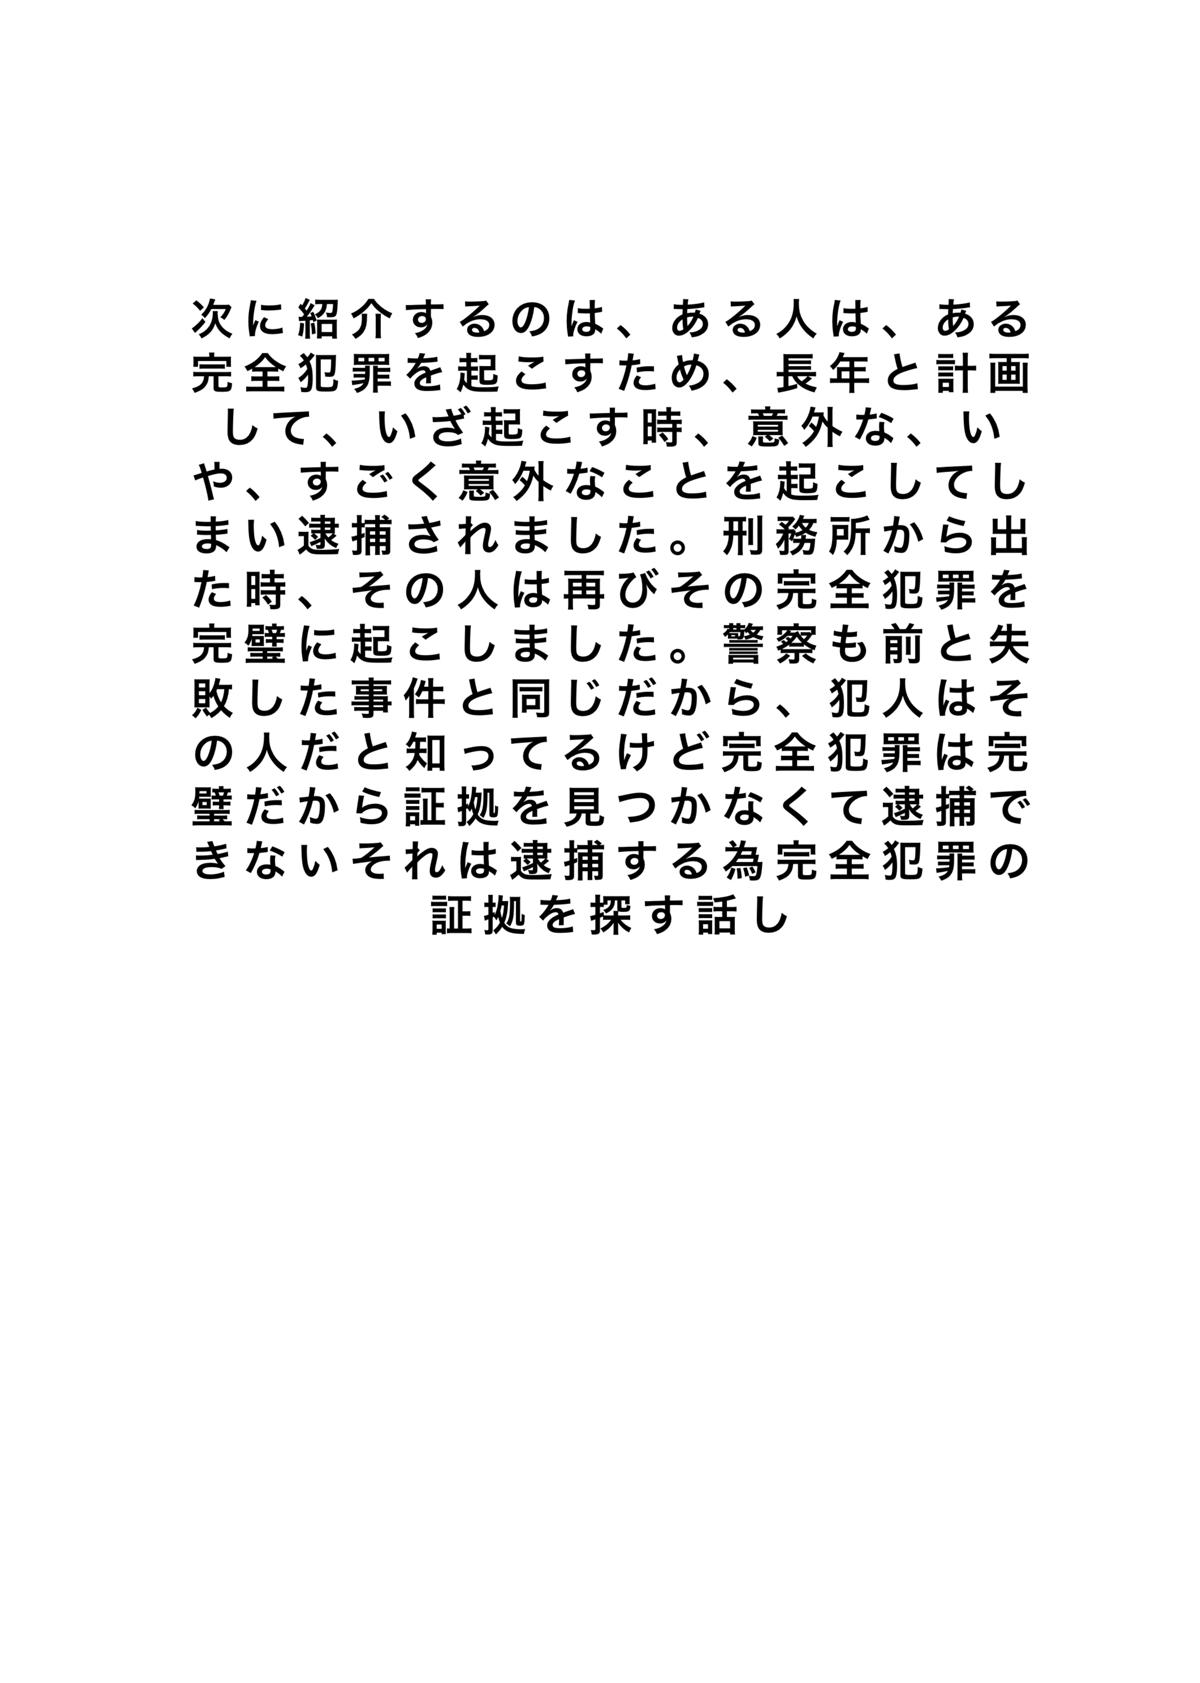 次に紹介するのは、ある人は、ある
完全犯罪を起こすため、長年と計画
して、いざ起こす時、意外な、い
や、すごく意外なことを起こしてし
まい逮捕されました。刑務所から出
た時、その人は再びその完全犯罪を
完璧に起こしました。警察も前と失
敗した事件と同じだから、犯人はそ
の人だと知ってるけど完全犯罪は完
璧だから証拠を見つかなくて逮捕で
きないそれは逮捕する為完全犯罪の
証拠を探す話し